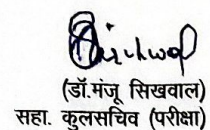 (डॉ.मंजू सिखवाल)
सहा. कुलसचिव (परीक्षा)